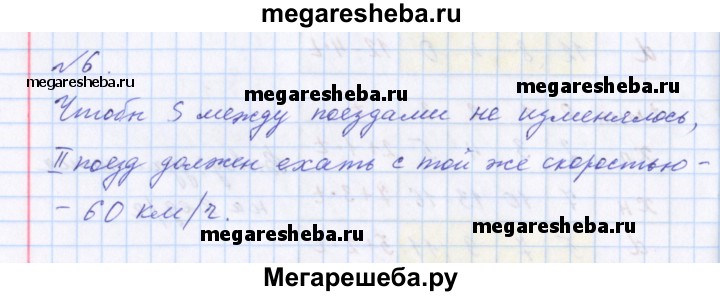 megaresheba.ru
№6.
megaresheba.ru megaresheba.ru
Чтобы S между поездами не изменялось,
II поезд должен ехать с той же скоростью -
- 60 км/ч.
megaresheba.ru megaresheba.ru
Мегарешеба.ру